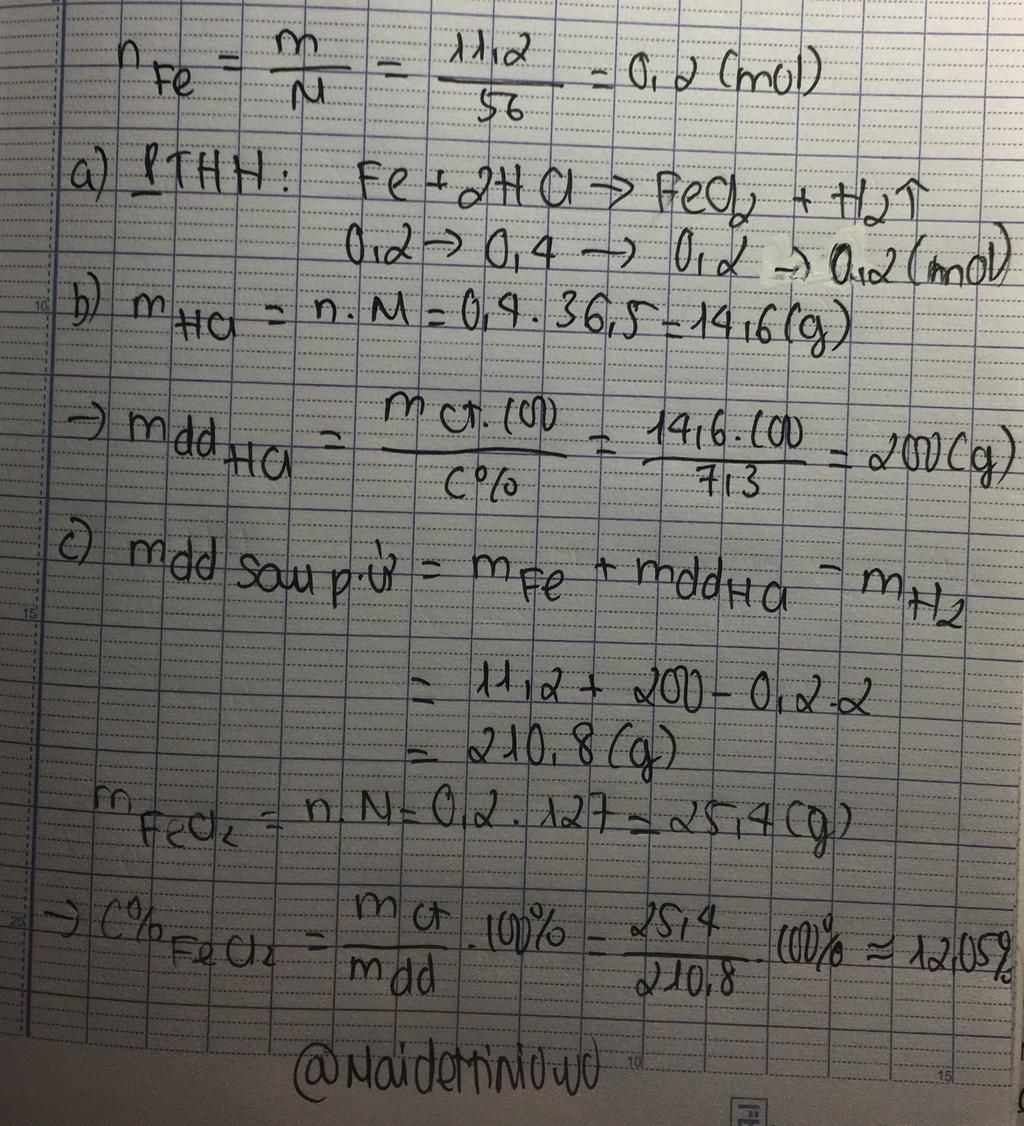 n Fe = m/M = 11,2/56 = 0,2 (mol)
a) PTHH: Fe + 2HCl → FeCl2 + H2↑
0,2 → 0,4 → 0,2 → 0,2 (mol)
b) m HCl = n.M = 0,4.36,5 = 14,6 (g)
→ mdd HCl = mct.100/C% = 14,6.100/7,3 = 200 (g)
c) mdd sau p.ứ = m Fe + mdd HCl - m H2
= 11,2 + 200 - 0,2.2
= 210,8 (g)
m FeCl2 = n.M = 0,2.127 = 25,4 (g)
→ C% FeCl2 = mct/mdd . 100% = 25,4/210,8 . 100% ≈ 12,05%
10
15
20
10
15